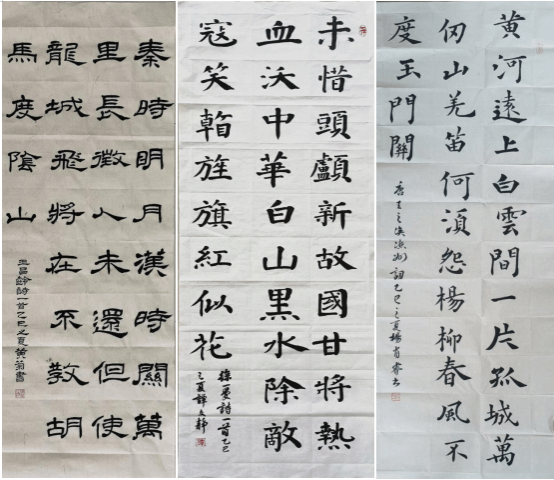 秦時明月漢時關萬
里長徵人未還但使
龍城飛將在不教胡
馬度陰山
王昌齡詩一首乙巳之夏黃翁書
未惜頭顱新故國甘將熱
血沃中華白山黑水除敵
寇笑看旌旗紅似花
詩一首乙巳
之夏譚文靜
黃河遠上白雲間一片孤城萬
仞山羌笛何須怨楊柳春風不
度玉門關
唐王之渙涼州詞乙巳之夏楊書